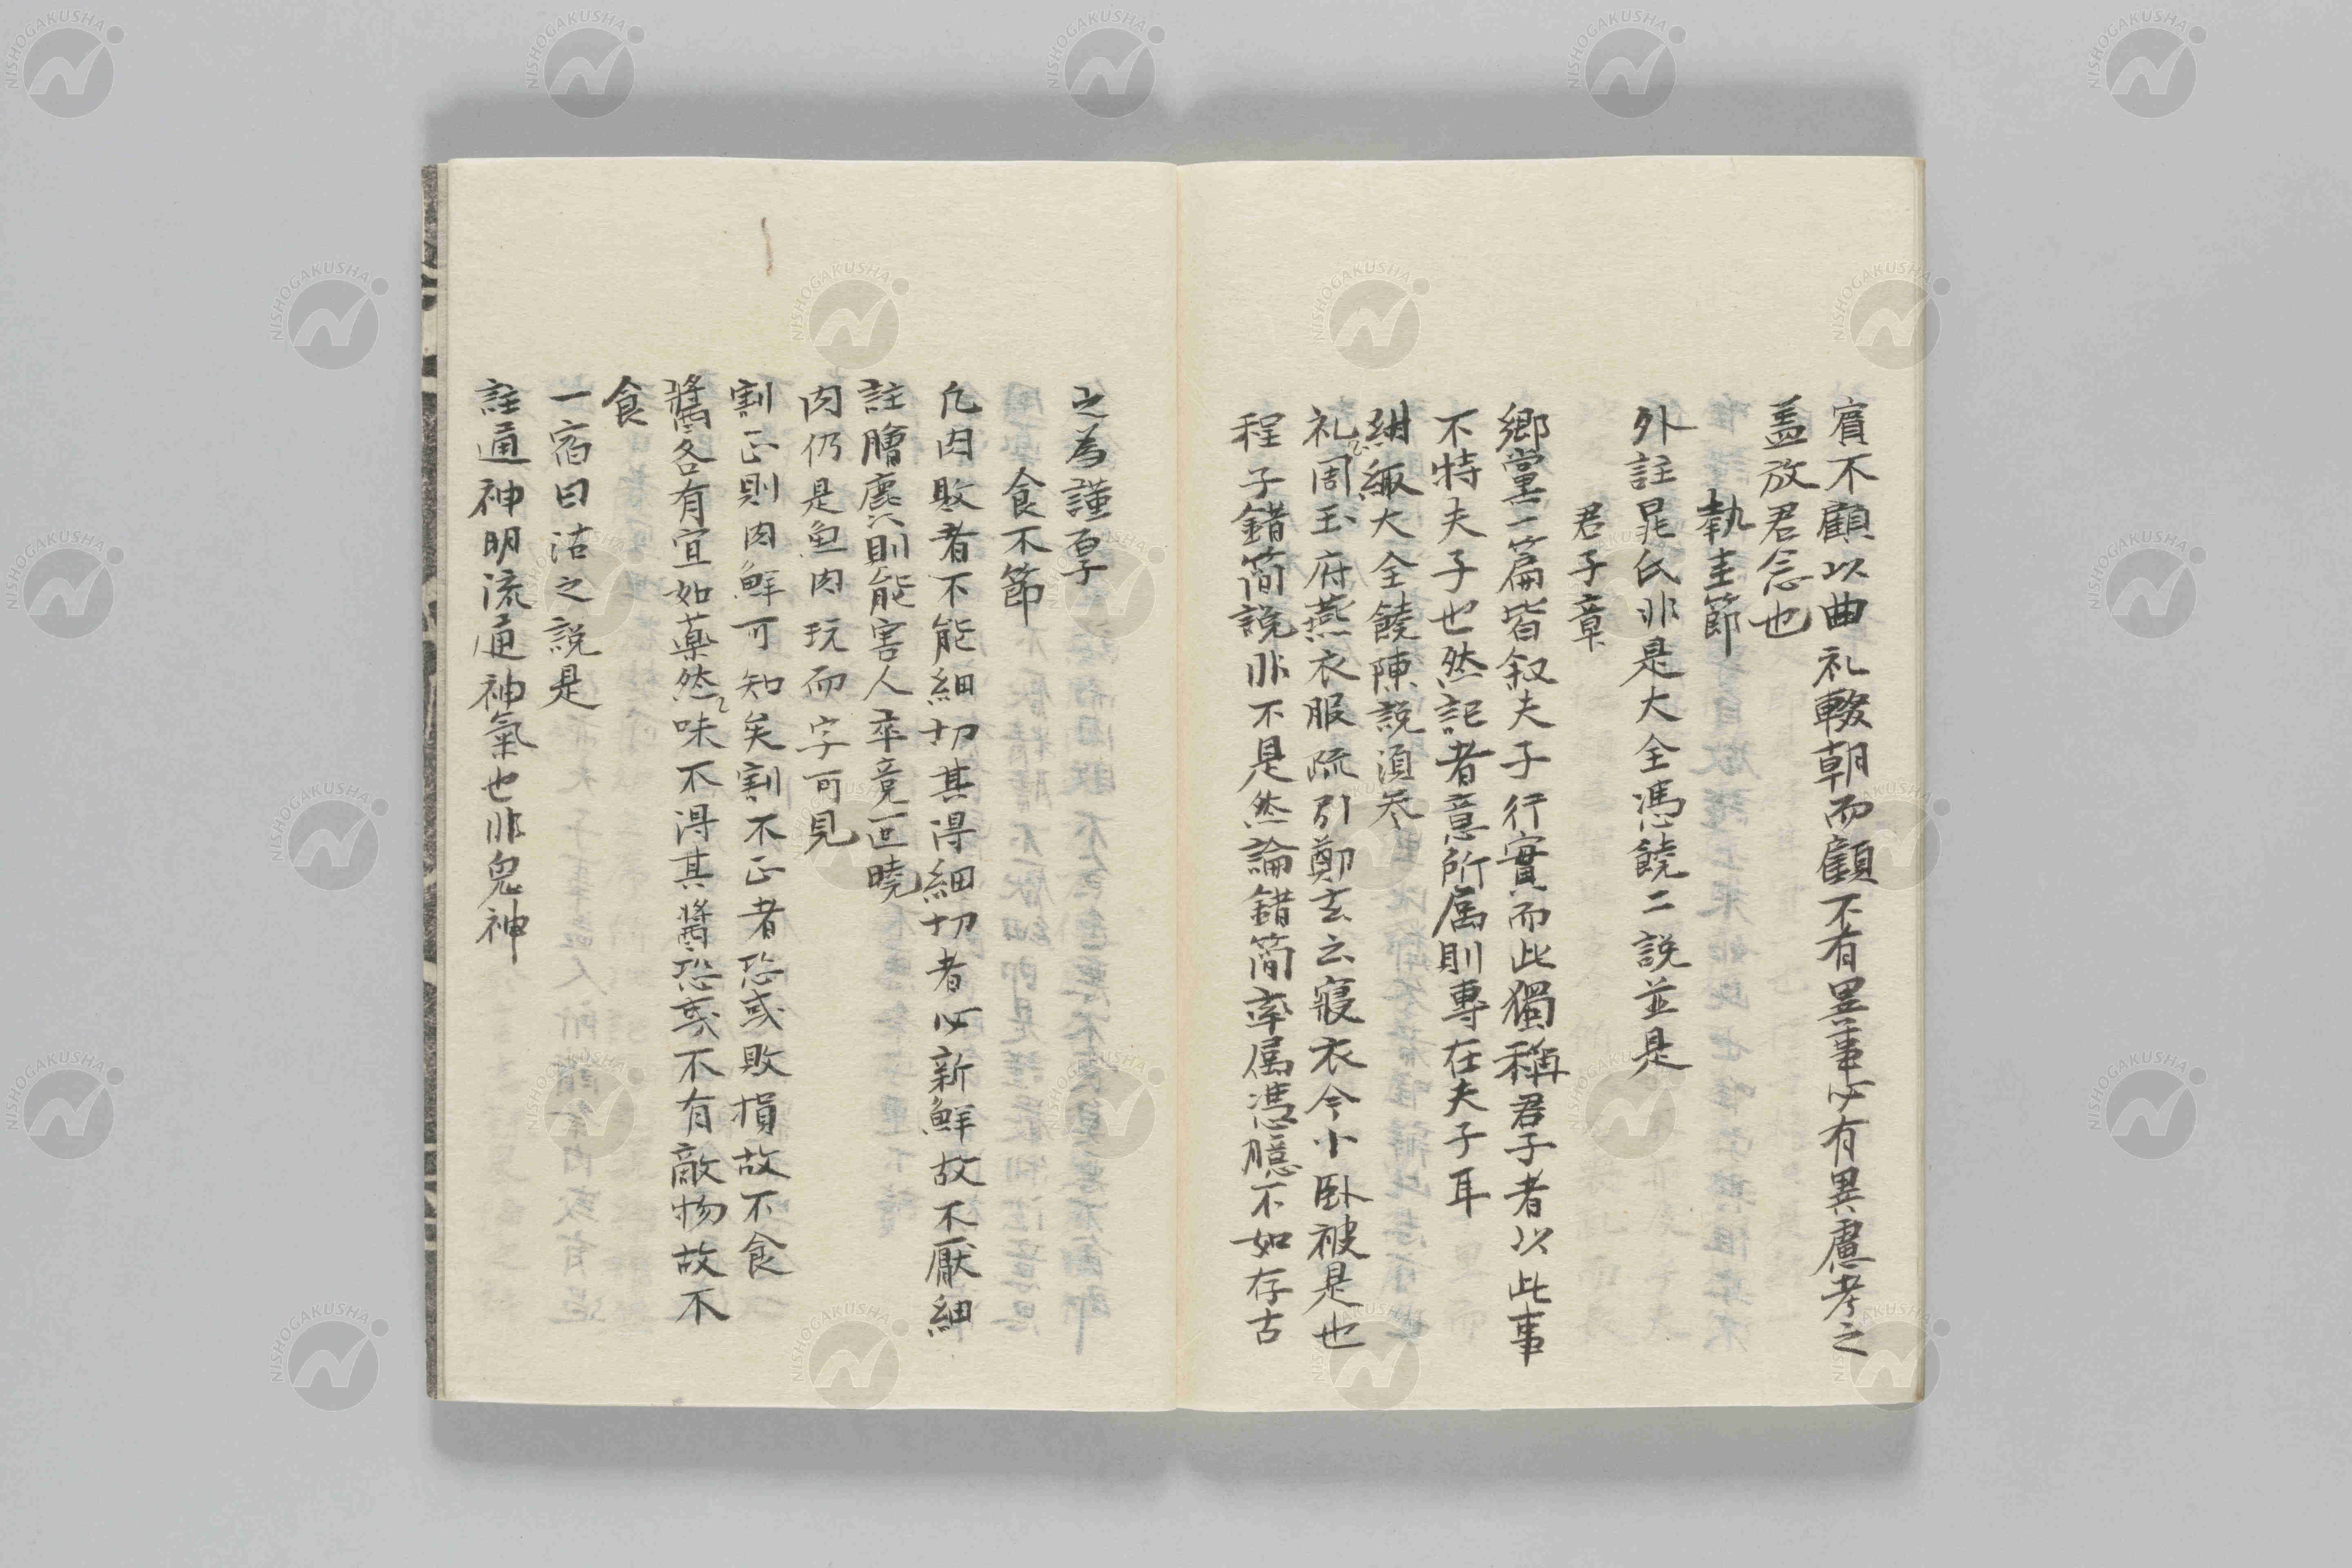 賔不顧以曲礼輟朝而顧不有異事必有異慮考之
盖放君念也
執圭節
外註晁氏非是大全馮饒二說並是
君子章
郷黨一篇皆叙夫子行實而此獨稱君子者以此事
不特夫子也然記者意所属則專在夫子耳
紺緅大全饒陳說湏参
礼周玉府燕衣服疏引鄭玄云寢衣今小卧被是也
程子錯简說非不是然論錯简率属馮臆不如存古
之為謹厚
食不節
凢肉敗者不能細切其得細切者必新鮮故不厭細
註膾麁則能害人卒竟叵曉
肉仍是魚肉玩而字可見
割正則肉鮮可知矣割不正者恐或敗損故不食
醬各有宜如薬然味不得其醬恐或不有敵物故不
食
一宿曰沽之說是
註通神明流通神氣也非鬼神
NISHOGAKUSHA